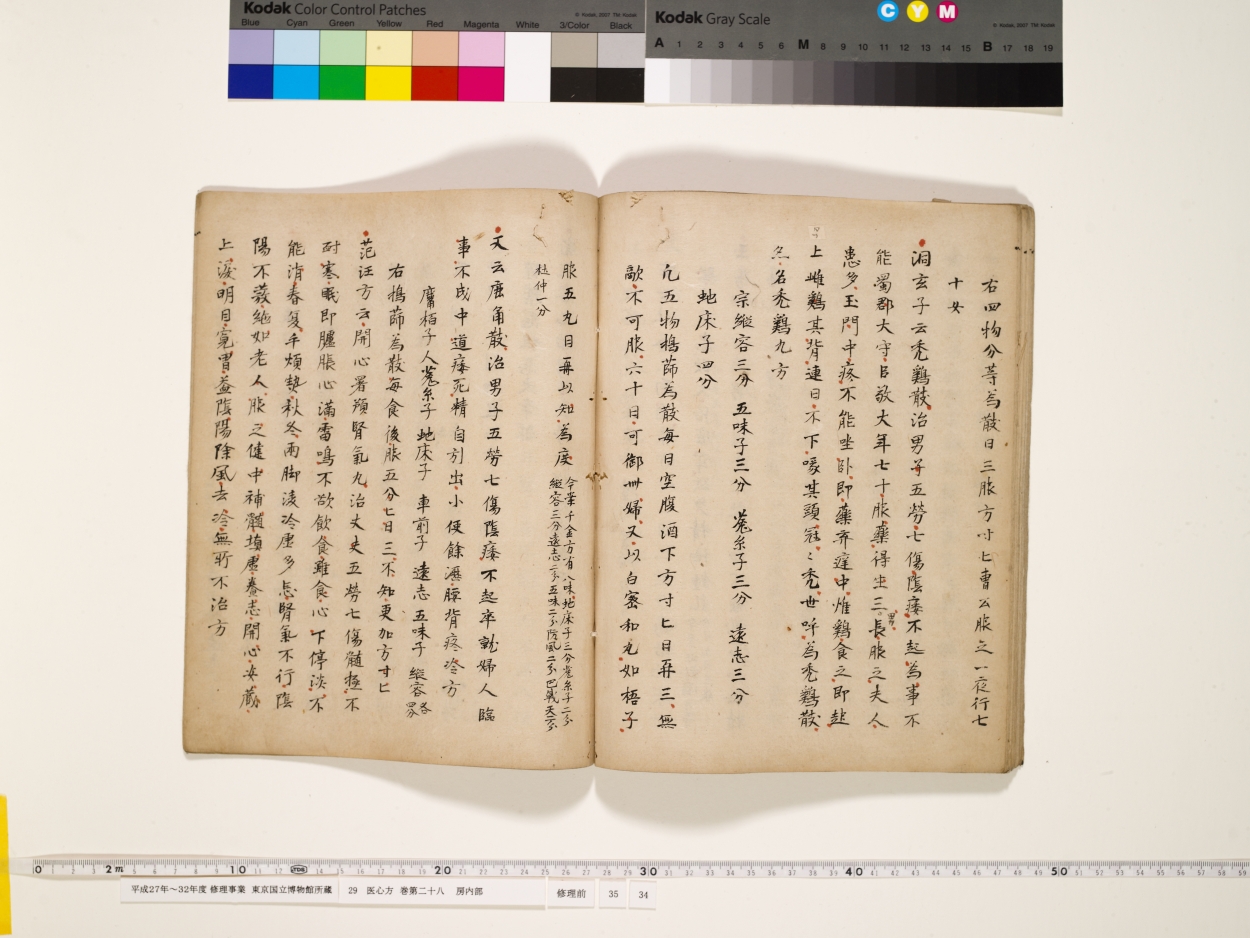 Kodak Color Control Patches
© Kodak, 2007 TM: Kodak
Blue Cyan Green Yellow Red Magenta White 3/Color Black
Kodak Gray Scale
C Y M
© Kodak, 2007 TM: Kodak
A 1 2 3 4 5 6 M 8 9 10 11 12 13 14 15 B 17 18 19
右四物分等為散日三服方寸匕曹公服之一夜行七
十女
洞玄子云禿鷄散治男子五勞七傷陰痿不起為事不
能蜀郡大守呂敬大年七十服藥得生三男長服之夫人
患多玉門中疼不能坐臥即藥弃庭中雄鷄食之即起
上雌鷄其背連日不下喙其頭冠〻禿世呼為禿鷄散
亦名禿鷄丸方
宗縱容三分 五味子三分 菟糸子三分 遠志三分
虵床子四分
凡五物搗篩為散每日空腹酒下方寸匕日再三無
敵不可服六十日可御卌婦又以白蜜和丸如梧子
服五丸日再以知為度 今案千金方有八味虵床子三分菟糸子二分
縱容三分遠志二分五味二分防風二分巴戟天二分
杜仲一分
又云鹿角散治男子五勞七傷陰痿不起卒就婦人臨
事不成中道痿死精自引出小便餘瀝腰背疼冷方
鹿角 柏子人 菟糸子 虵床子 車前子 遠志 五味子 縱容各四分
右搗篩為散每食後服五分匕日三不知更加方寸匕
范汪方云開心署預腎氣丸治丈夫五勞七傷髓極不
耐寒眠即臚脹心滿雷鳴不欲飲食雖食心下停淡不
能消春夏手煩熱秋冬兩脚淩冷虛多忘腎氣不行陰
陽不發絕如老人服之健中補髓填虛養志開心安藏
止淚明目寬胃益陰陽除風去冷無所不治方
0 2m 10 20 30 40 50
平成27年～32年度 修理事業 東京国立博物館所蔵 29 医心方 巻第二十八 房内部 修理前 35 34